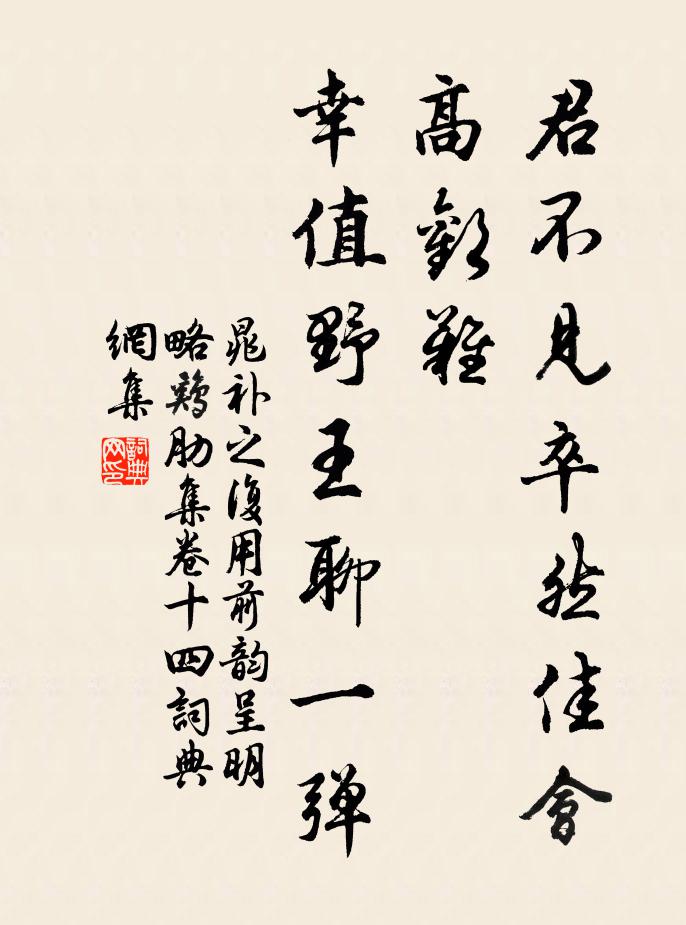 君不見卒然佳會
高歡難
幸值野王聊一彈
晁補之復用前韵呈明
略鶏肋集卷十四詞典
網集
詞典
网印